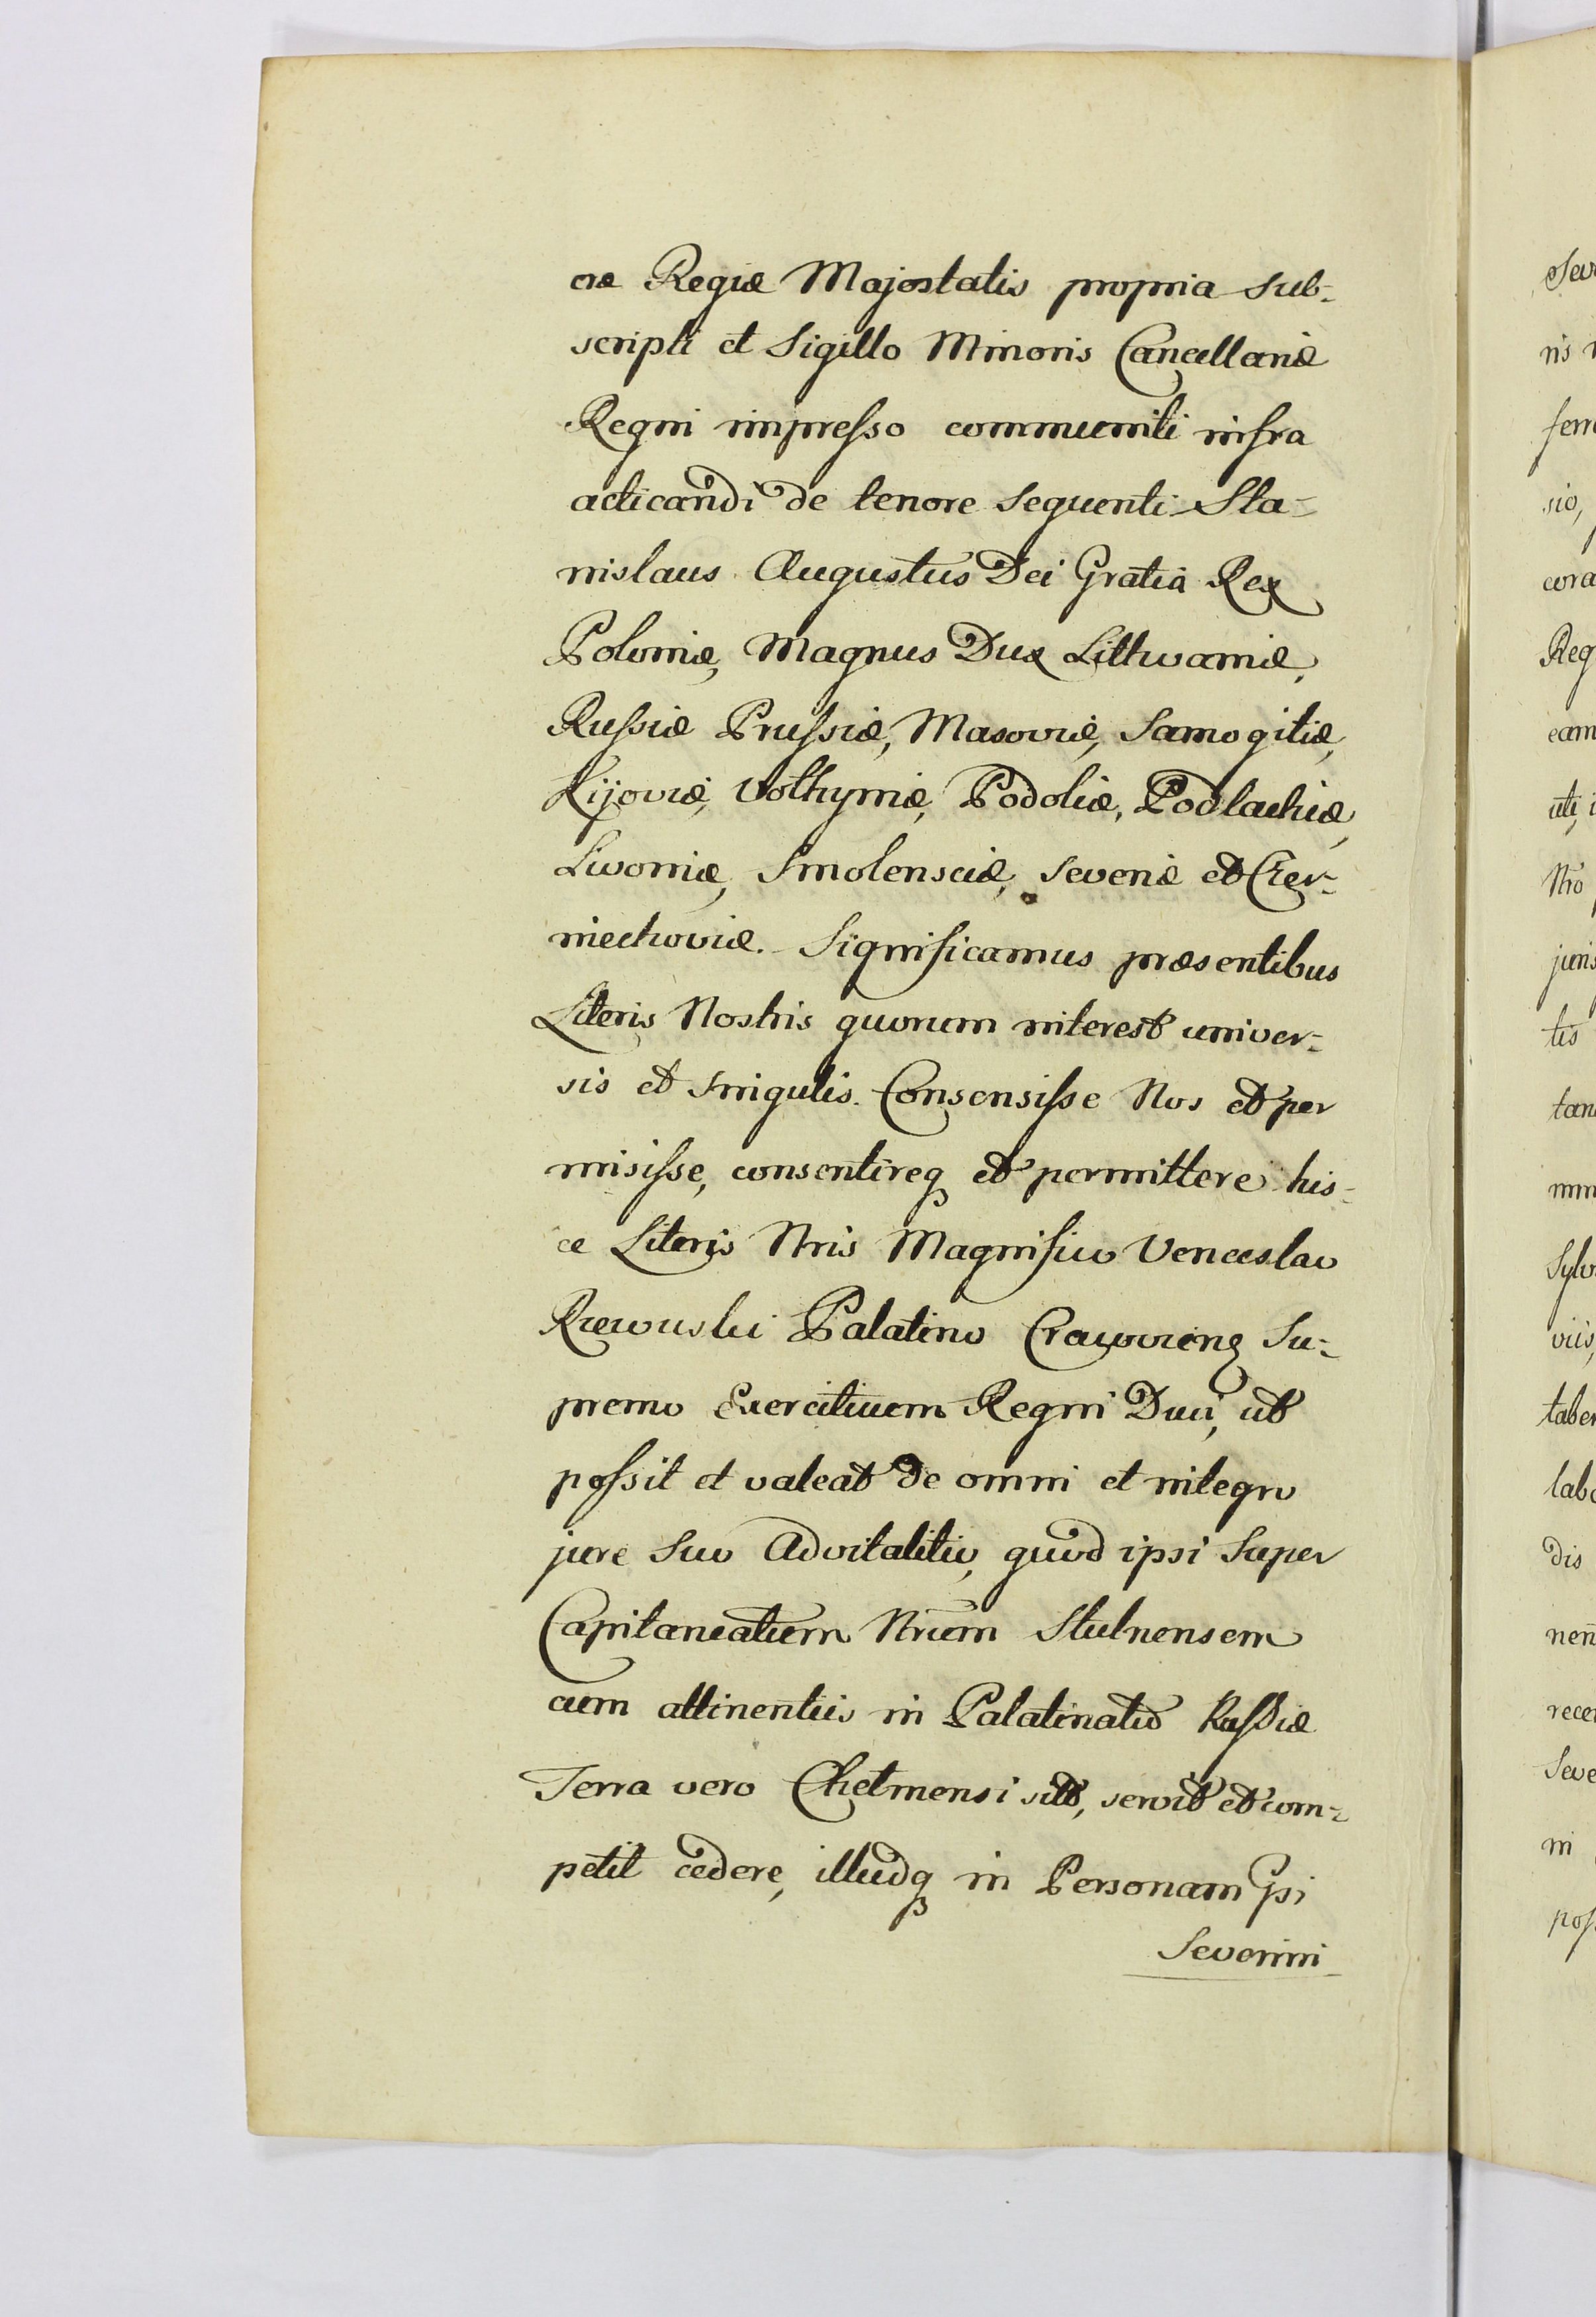 cræ Regiæ Majestatis propria sub-
scripti et Sigillo Minoris Cancellariæ
Regni impresso communiti infra
acticandi de tenore sequenti Sta-
nislaus Augustus Dei Gratia Rex
Poloniæ, Magnus Dux Lithvaniæ,
Russiæ Prussiæ, Masoviæ, Samogitiæ,
Kijoviæ, Volhyniæ, Podoliæ, Podlachiæ,
Livoniæ, Smolensciæ, Severiæ et Czer-
niechoviæ. Significamus præsentibus
Literis Nostris quorum interest univer-
sis et singulis. Consensisse Nos et per
misisse, consentireq et permittere his-
ce Literis Nris Magnifico Venceslao
Rzewuski Palatino Cracovieng Su-
premo Exercituum Regni Duci, ut
possit et valeat de omni et integro
jure suo Advitalitio, quod ipsi super
Capitaneatum Nrum Stulnensem
cum attinentiis in Palatinatu Russiæ
Terra vero Chelmensi sitt, servit et com-
petit cedere, illudq in Personam Gsi
Severini
Sev
ris
ferr
sio,
cora
Reg
eam
uti, i
Nro
juris
tis
tan
mm
Sylv
viis,
taber
labo
dis
nen
rece
Seve
in
pos